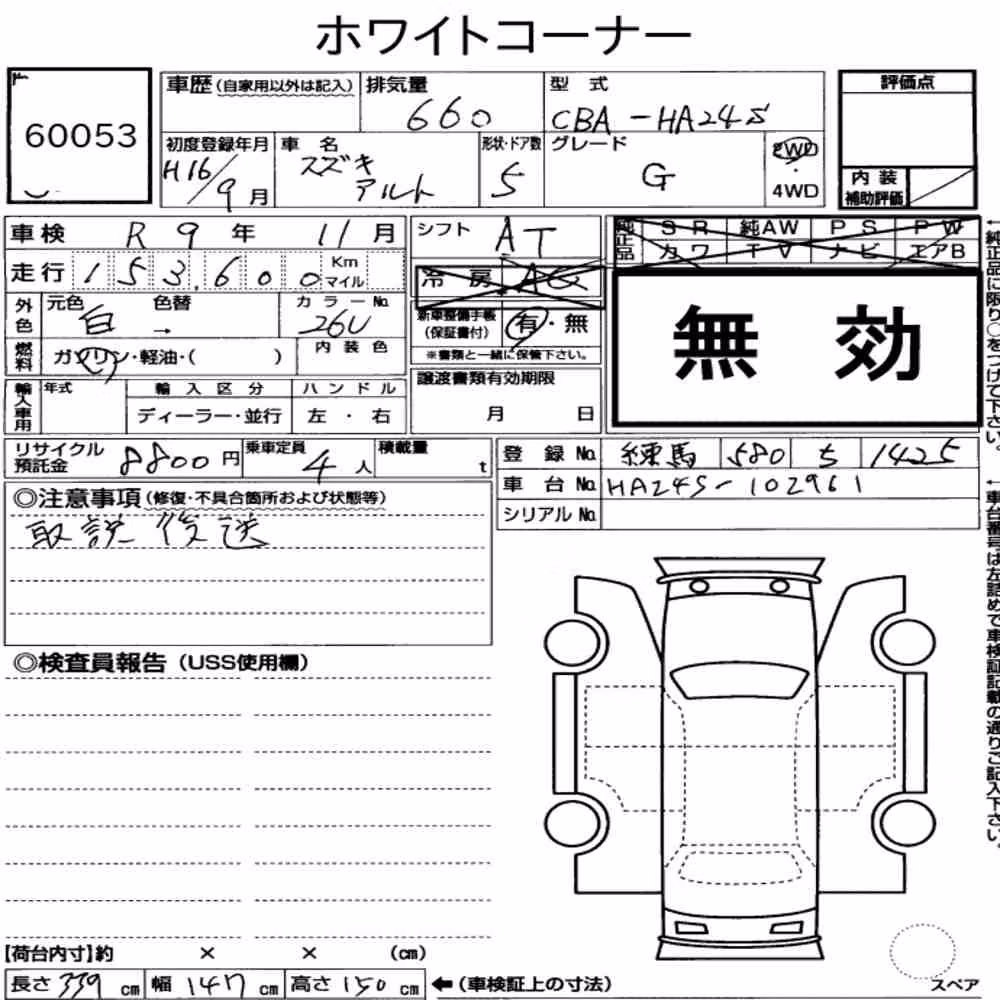 ホワイトコーナー
60053
車歴 (自家用以外は記入) 排気量 660 型式 CBA-HA24S
評価点
初度登録年月 H16/9月 車名 スズキ アルト 形状・ドア数 5 グレード G 2WD・4WD
内装補助評価
車検 R9年 11月
シフト AT
純正品 SR 純AW PS PW
カワ TV ナビ エアB
走行 153,600 Km マイル
冷房 AC
外色 元色 白 色替 → カラーNo. 26U
新車整備手帳(保証書付) 有・無
※書類と一緒に保管下さい。
無効
燃料 ガソリン・軽油・( ) 内装色
輸入車用 年式 輸入区分 ディーラー・並行 ハンドル 左・右
譲渡書類有効期限 月 日
リサイクル預託金 8800円 乗車定員 4人 積載量 t
登録No. 練馬 580 ち 1425
車台No. HA24S-102961
シリアルNo.
◎注意事項(修復・不具合箇所および状態等)
取説後送
◎検査員報告(USS使用欄)
【荷台内寸】約 × × (cm)
長さ 339 cm 幅 147 cm 高さ 150 cm ←(車検証上の寸法)
スペア
←純正品に限り○をつけて下さい。
←車台番号は左詰めで車検証記載の通りご記入下さい。